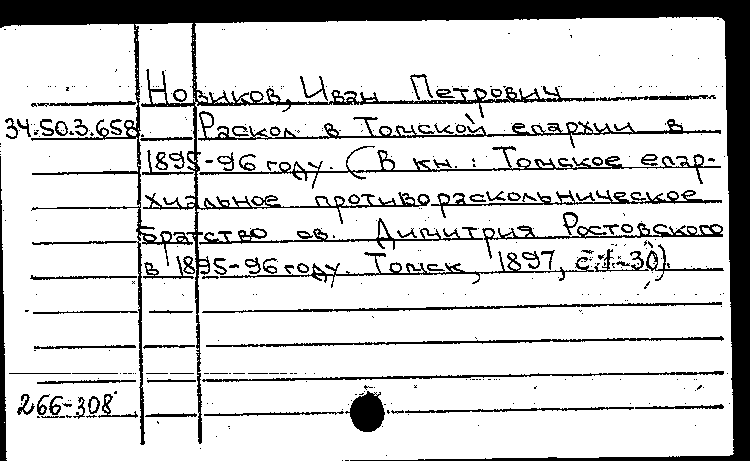 Новиков, Иван Петрович
34.50.3.658 Раскол в Томской епархии в
1895-96 году. (В кн.: Томское епар-
хиальное противораскольническое
братство св. Димитрия Ростовского
в 1895-96 году. Томск, 1897, с.1-30).
266-308